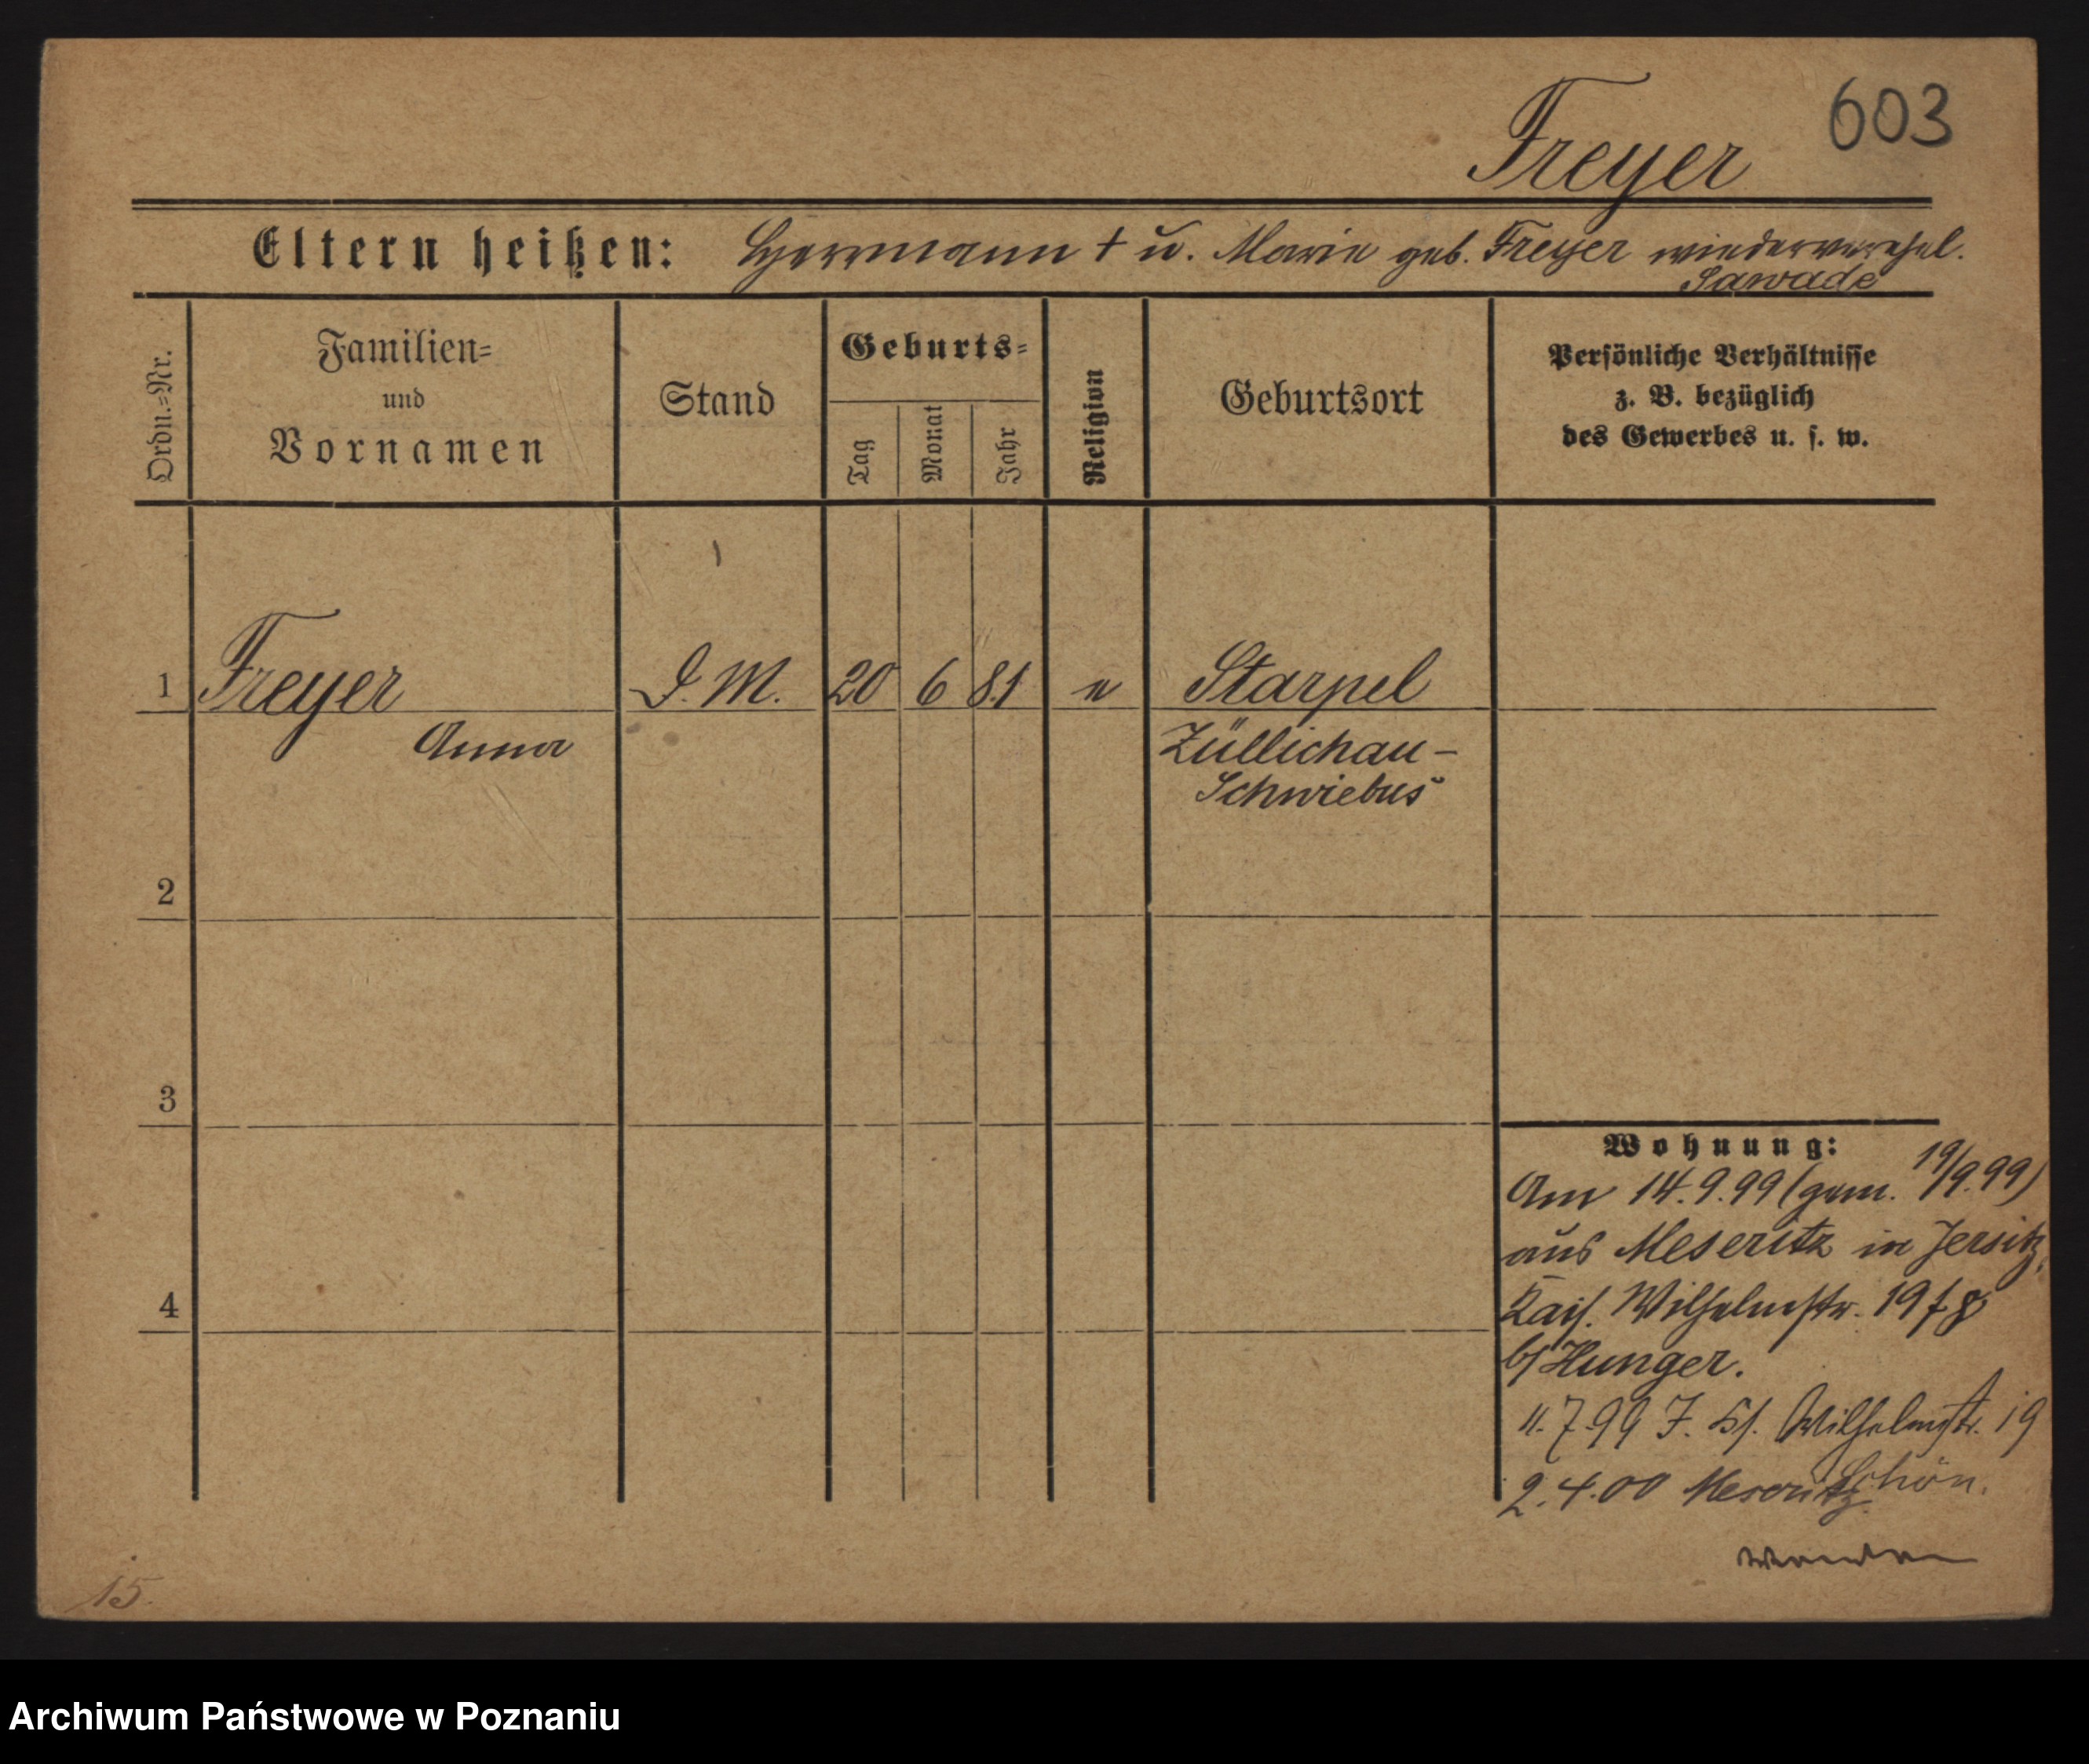 603
Freyer
Eltern heißen: Herrmann † u. Marie geb. Freyer wiederverehel.
Sawade
Ordn.=Nr.
Familien=
und
Vornamen
Stand
Geburts=
Tag
Monat
Jahr
Religion
Geburtsort
Persönliche Verhältnisse
z. B. bezüglich
des Gewerbes u. s. w.
1 Freyer D. M. 20 6 81 e Starpel
Anna Züllichau-
Schwiebus
2
3
4
Wohnung:
Am 14.9.99 (gem. 19/9.99)
aus Meseritz in Jersitz,
Kais. Wilhelmstr. 19
b/ Hunger.
11.7.99 J. Wilhelmstr. 19
Schön.
2.4.00 Meseritz
15.
Archiwum Państwowe w Poznaniu